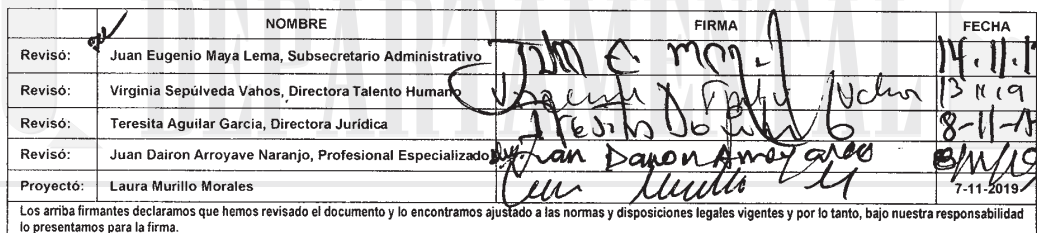 DEPARTAMENTAL
NOMBRE FIRMA FECHA
Revisó: Juan Eugenio Maya Lema, Subsecretario Administrativo Juan E. 14.11.1
Revisó: Virginia Sepúlveda Vahos, Directora Talento Humano 13 11 19
Revisó: Teresita Aguilar García, Directora Jurídica Teresita 8-11-19
Revisó: Juan Dairon Arroyave Naranjo, Profesional Especializado Juan Dairon Arroyave
Proyectó: Laura Murillo Morales Laura Murillo M 7-11-2019
Los arriba firmantes declaramos que hemos revisado el documento y lo encontramos ajustado a las normas y disposiciones legales vigentes y por lo tanto, bajo nuestra responsabilidad
lo presentamos para la firma.